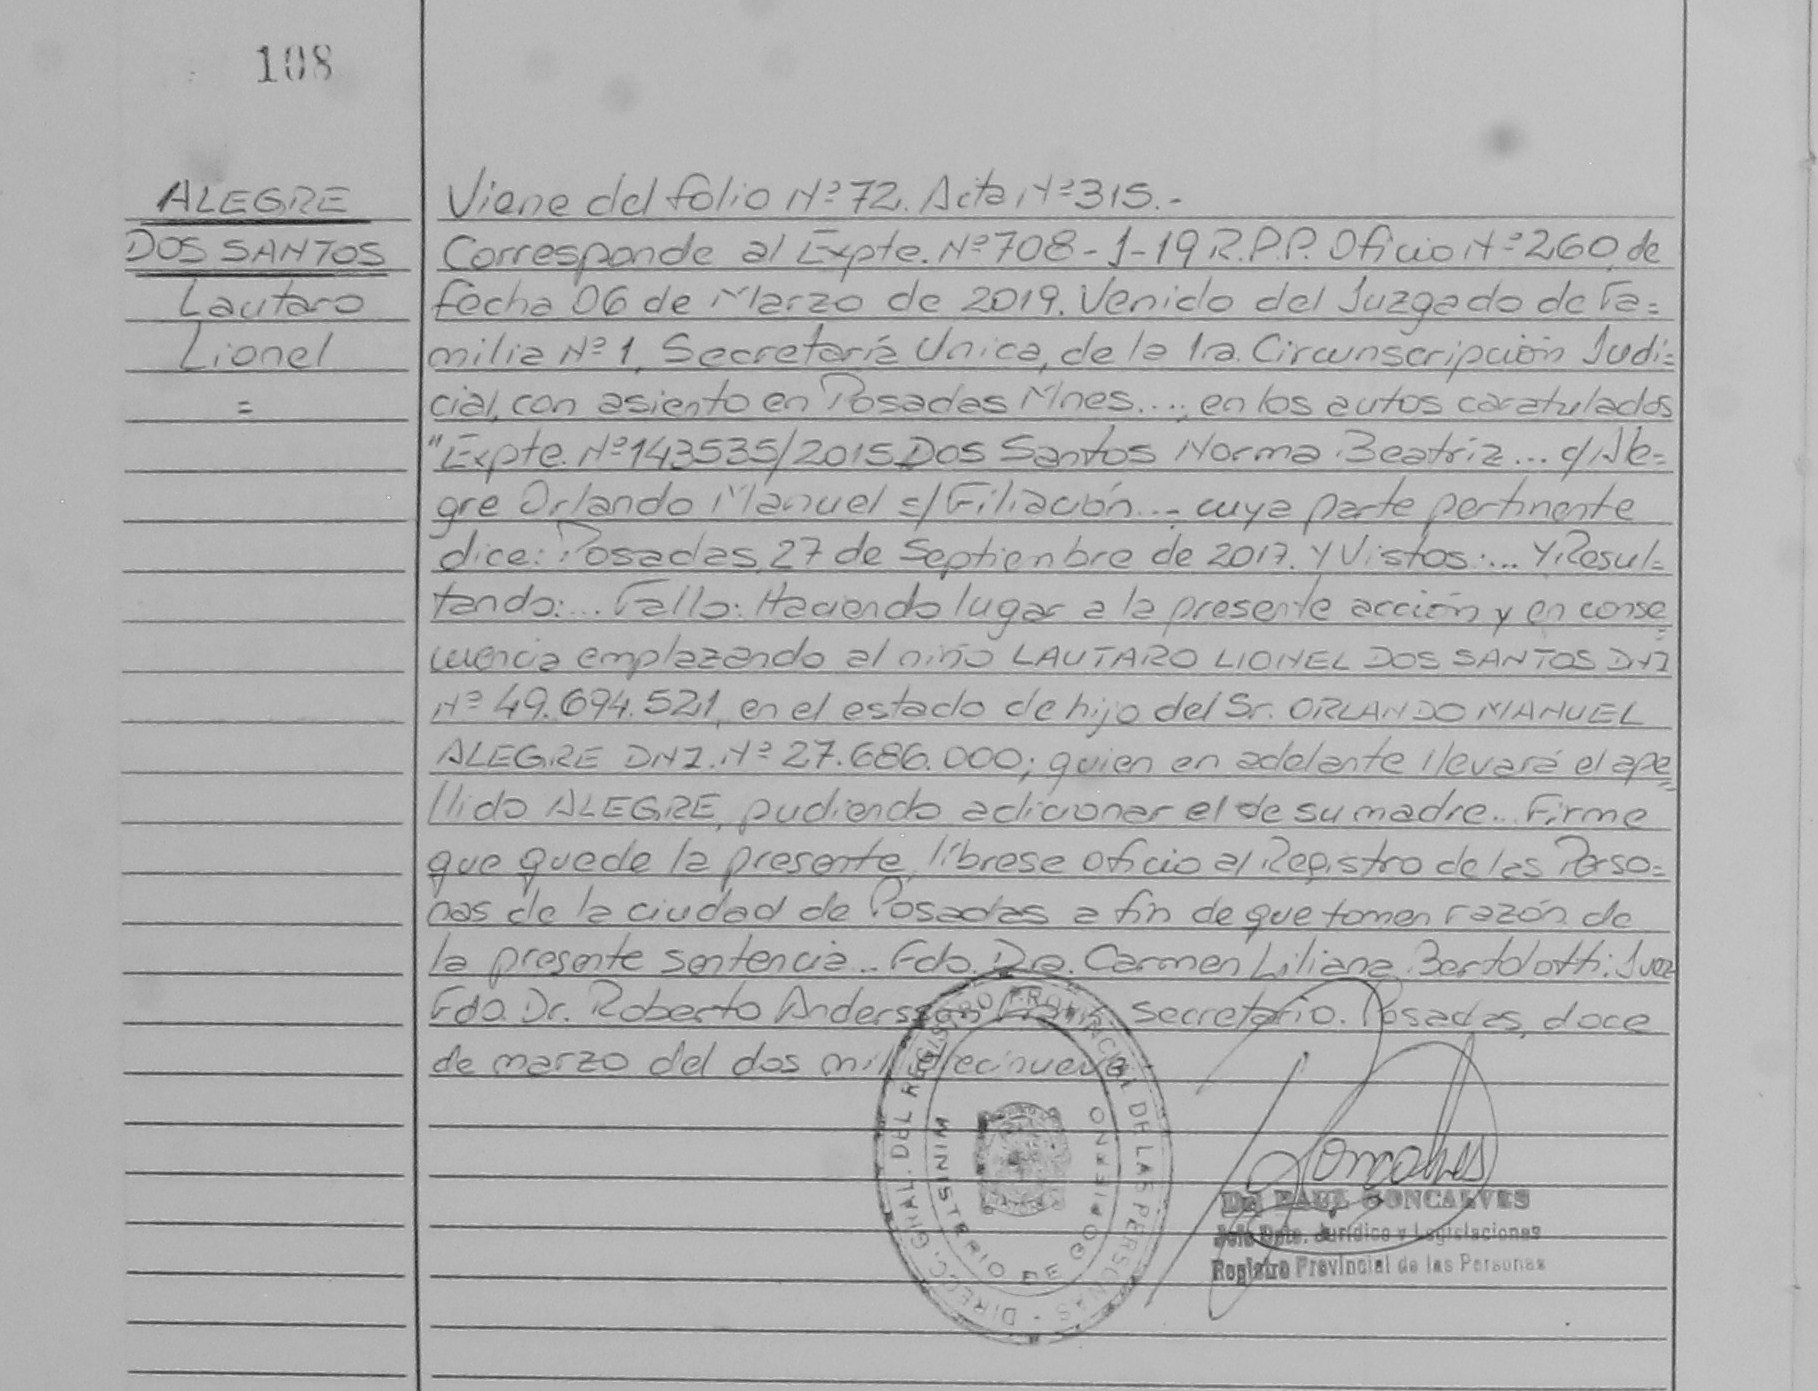 108
ALEGRE
DOS SANTOS
Lautaro
Lionel
=
Viene del folio Nº 72. Acta Nº 315.-
Corresponde al Expte. Nº 708-1-19 R.P.P. Oficio Nº 260 de
fecha 06 de Marzo de 2019. Venido del Juzgado de Fa=
milia Nº 1, Secretaría Unica, de la 1ra. Circunscripción Judi=
cial, con asiento en Posadas Mnes...., en los autos caratulados
"Expte. Nº 143535/2015 Dos Santos Norma Beatriz... c/ Ale=
gre Orlando Manuel s/ Filiación... cuya parte pertinente
dice: Posadas, 27 de Septiembre de 2017. Y Vistos:... Y Resul=
tando:... Fallo: Haciendo lugar a la presente acción y en conse=
cuencia emplazando al niño LAUTARO LIONEL DOS SANTOS DNI
Nº 49.694.521, en el estado de hijo del Sr. ORLANDO MANUEL
ALEGRE DNI. Nº 27.686.000; quien en adelante llevará el ape=
llido ALEGRE, pudiendo adicionar el de su madre... Firme
que quede la presente, líbrese oficio al Registro de las Perso=
nas de la ciudad de Posadas a fin de que tomen razón de
la presente sentencia... Fdo. Dra. Carmen Liliana Bertolotti: Juez
Fdo. Dr. Roberto Andersson Secretario. Posadas, doce
de marzo del dos mil diecinueve
DIRECC. GRAL. DEL REGISTRO PROVINCIAL DE LAS PERSONAS -
MINISTERIO DE GOBIERNO
Goncalves
Dr. RAUL GONCALVES
Jefe Dpto. Jurídico y Legislaciones
Registro Provincial de las Personas